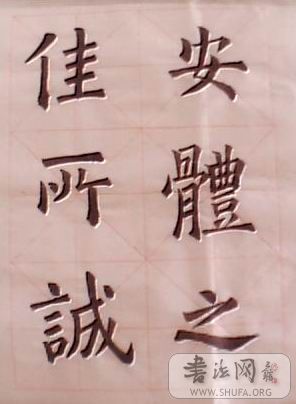 安體之
佳所誠
書法网
WWW.SHUFA.ORG